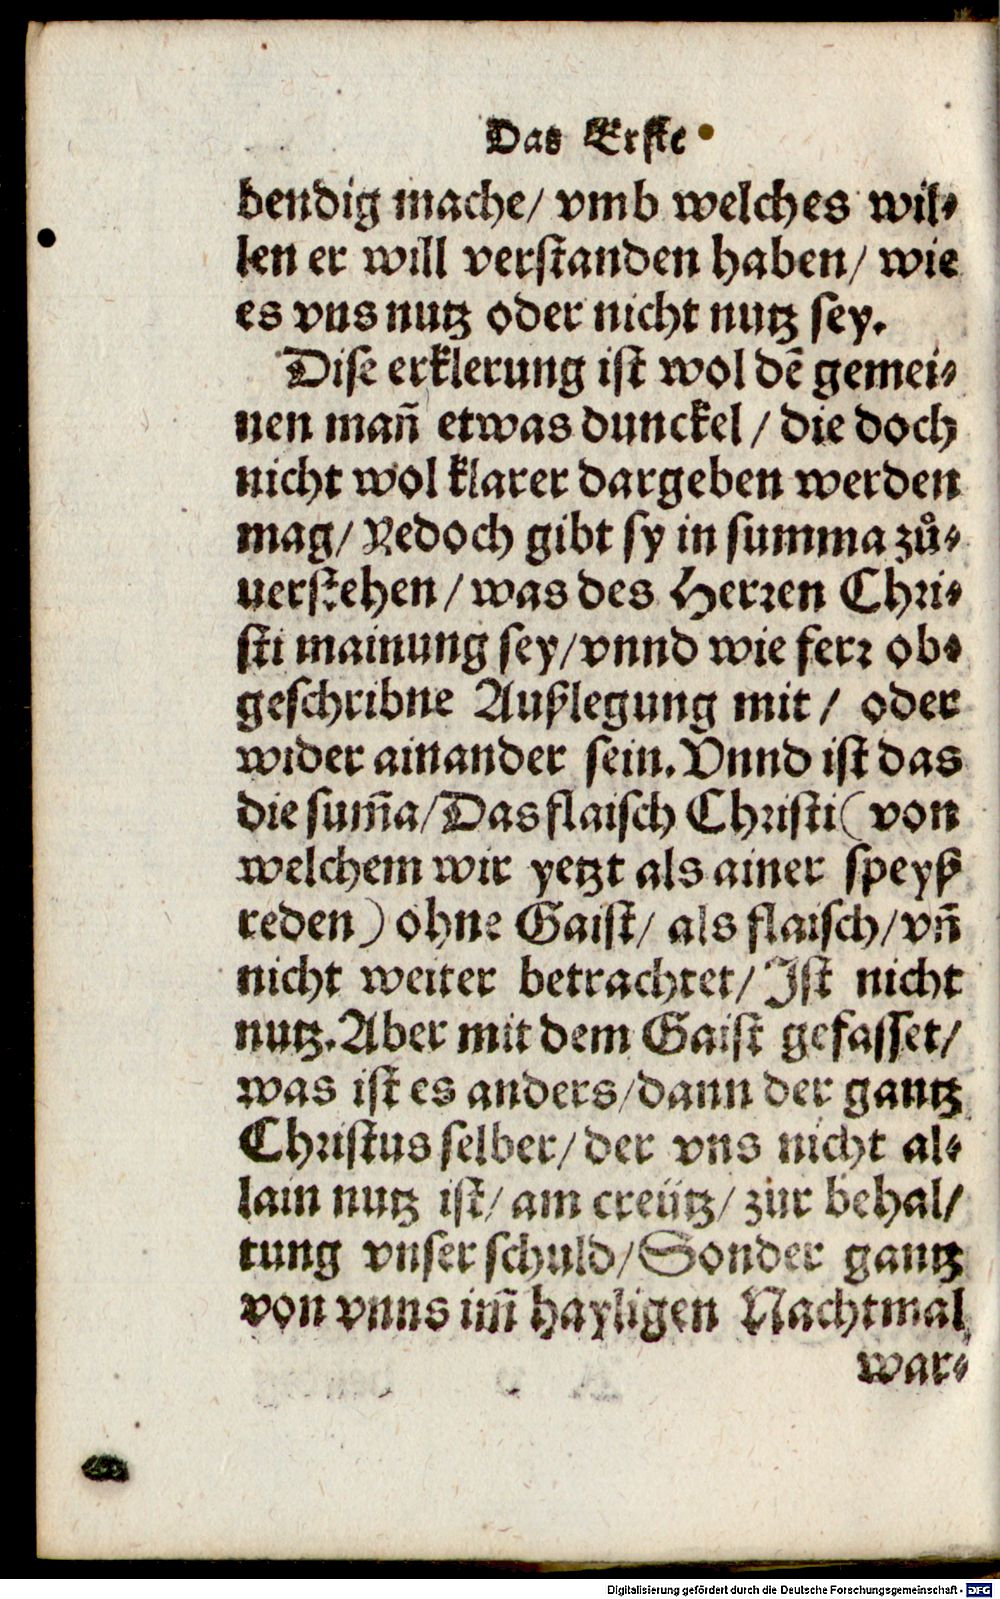 Das Erste
bendig mache/ vmb welches wil⸗
len er will verstanden haben/ wie
es vns nutz oder nicht nutz sey.
Dise erklerung ist wol dẽ gemei⸗
nen mañ etwas dunckel/ die doch
nicht wol klarer dargeben werden
mag/ Yedoch gibt sy in summa zů⸗
uerstehen/ was des Herren Chri⸗
sti mainung sey/ vnnd wie ferr ob⸗
geschribne Außlegung mit/ oder
wider ainander sein. Vnnd ist das
die sum̃a/ Das flaisch Christi (von
welchem wir yetzt als ainer speyß
reden) ohne Gaist/ als flaisch/ vñ
nicht weiter betrachtet/ Ist nicht
nutz. Aber mit dem Gaist gefasset/
was ist es anders/ dann der gantz
Christus selber/ der vns nicht al⸗
lain nutz ist/ am creütz/ zur behal/
tung vnser schuld/ Sonder gantz
von vnns im̃ hayligen Nachtmal
war⸗
Digitalisierung gefördert durch die Deutsche Forschungsgemeinschaft - DFG